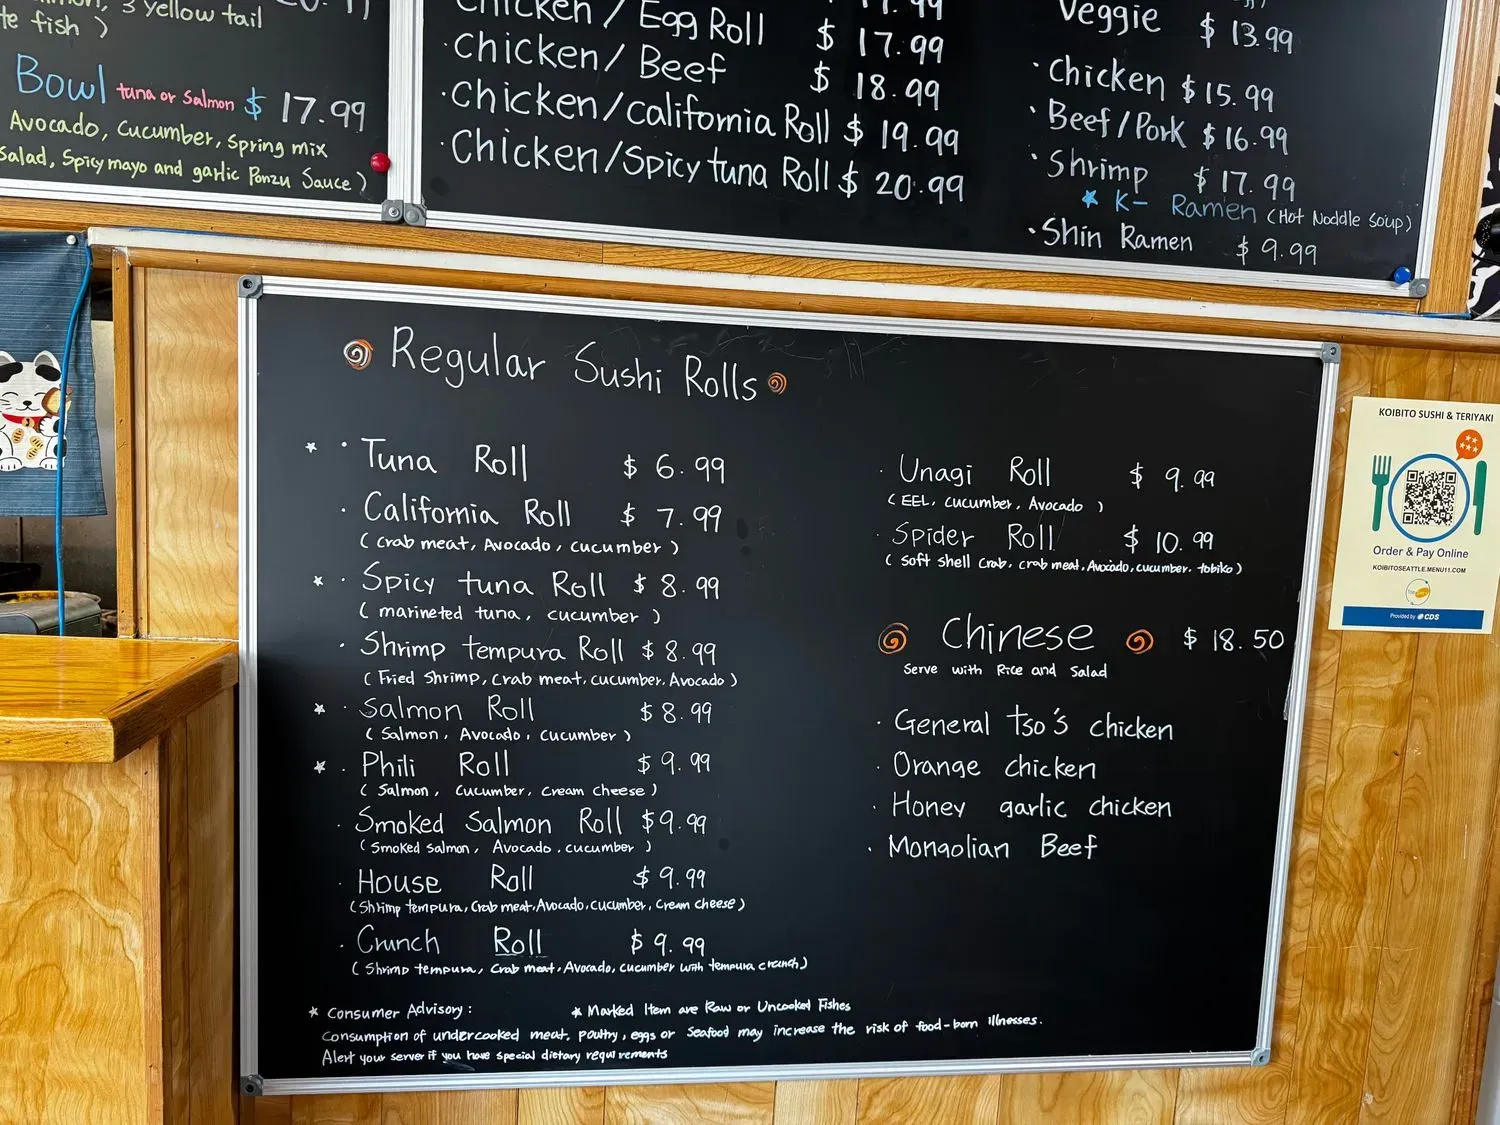 , 3 yellow tail
te fish )
Bowl tuna or Salmon $ 17.99
Avocado, cucumber, spring mix
Salad, Spicy mayo and garlic Ponzu Sauce )
Chicken / Egg Roll $ 17.99
· Chicken/ Beef $ 18.99
· Chicken/california Roll $ 19.99
· Chicken/Spicy tuna Roll $ 20.99
Veggie $ 13.99
· Chicken $ 15.99
· Beef/Pork $ 16.99
· Shrimp $ 17.99
* K- Ramen (Hot Noddle Soup)
· Shin Ramen $ 9.99
Regular Sushi Rolls
* · Tuna Roll $ 6.99
· California Roll $ 7.99
( crab meat, Avocado, cucumber )
* · Spicy tuna Roll $ 8.99
( marineted tuna, cucumber )
· Shrimp tempura Roll $ 8.99
( Fried Shrimp, Crab meat, cucumber, Avocado )
* · Salmon Roll $ 8.99
( Salmon, Avocado, cucumber )
* · Phili Roll $ 9.99
( Salmon, cucumber, cream cheese )
· Smoked Salmon Roll $ 9.99
( Smoked salmon, Avocado, cucumber )
· House Roll $ 9.99
( Shrimp tempura, Crab meat, Avocado, cucumber, cream cheese )
· Crunch Roll $ 9.99
( Shrimp tempura, Crab meat, Avocado, cucumber with tempura crunch )
· Unagi Roll $ 9.99
( EEL, cucumber, Avocado )
· Spider Roll $ 10.99
( Soft shell Crab, crab meat, Avocado, cucumber, tobiko )
Chinese $ 18.50
Serve with Rice and Salad
· General tso's chicken
· Orange chicken
· Honey garlic chicken
· Mongolian Beef
* Consumer Advisory : * Marked Item are Raw or Uncooked Fishes
Consumption of undercooked meat, poultry, eggs or Seafood may increase the risk of food-born illnesses.
Alert your server if you have special dietary requirements
KOIBITO SUSHI & TERIYAKI
Order & Pay Online
KOIBITOSEATTLE.MENU11.COM
Provided by CDS